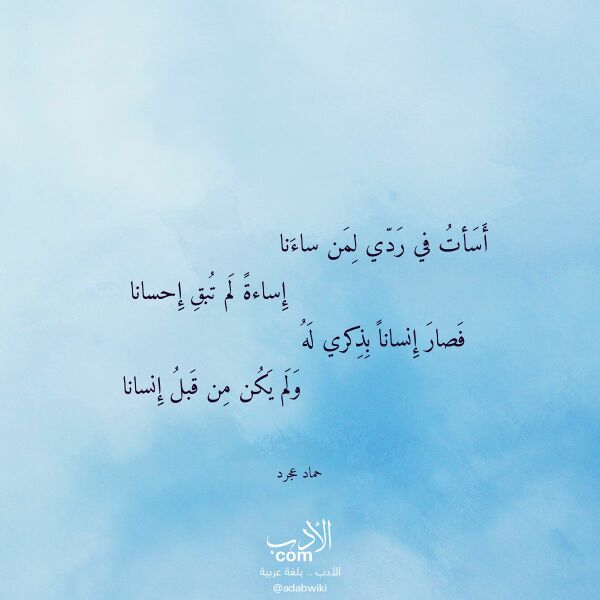 أَسَأتُ في رَدّي لِمَن ساءَنا
إِساءةً لَم تُبقِ إِحسانا
فَصارَ إِنساناً بِذِكري لَهُ
وَلَم يَكُن مِن قَبلُ إِنسانا
حماد عجرد
الأدب
com
الأدب .. بلغة عربية
@adabwiki